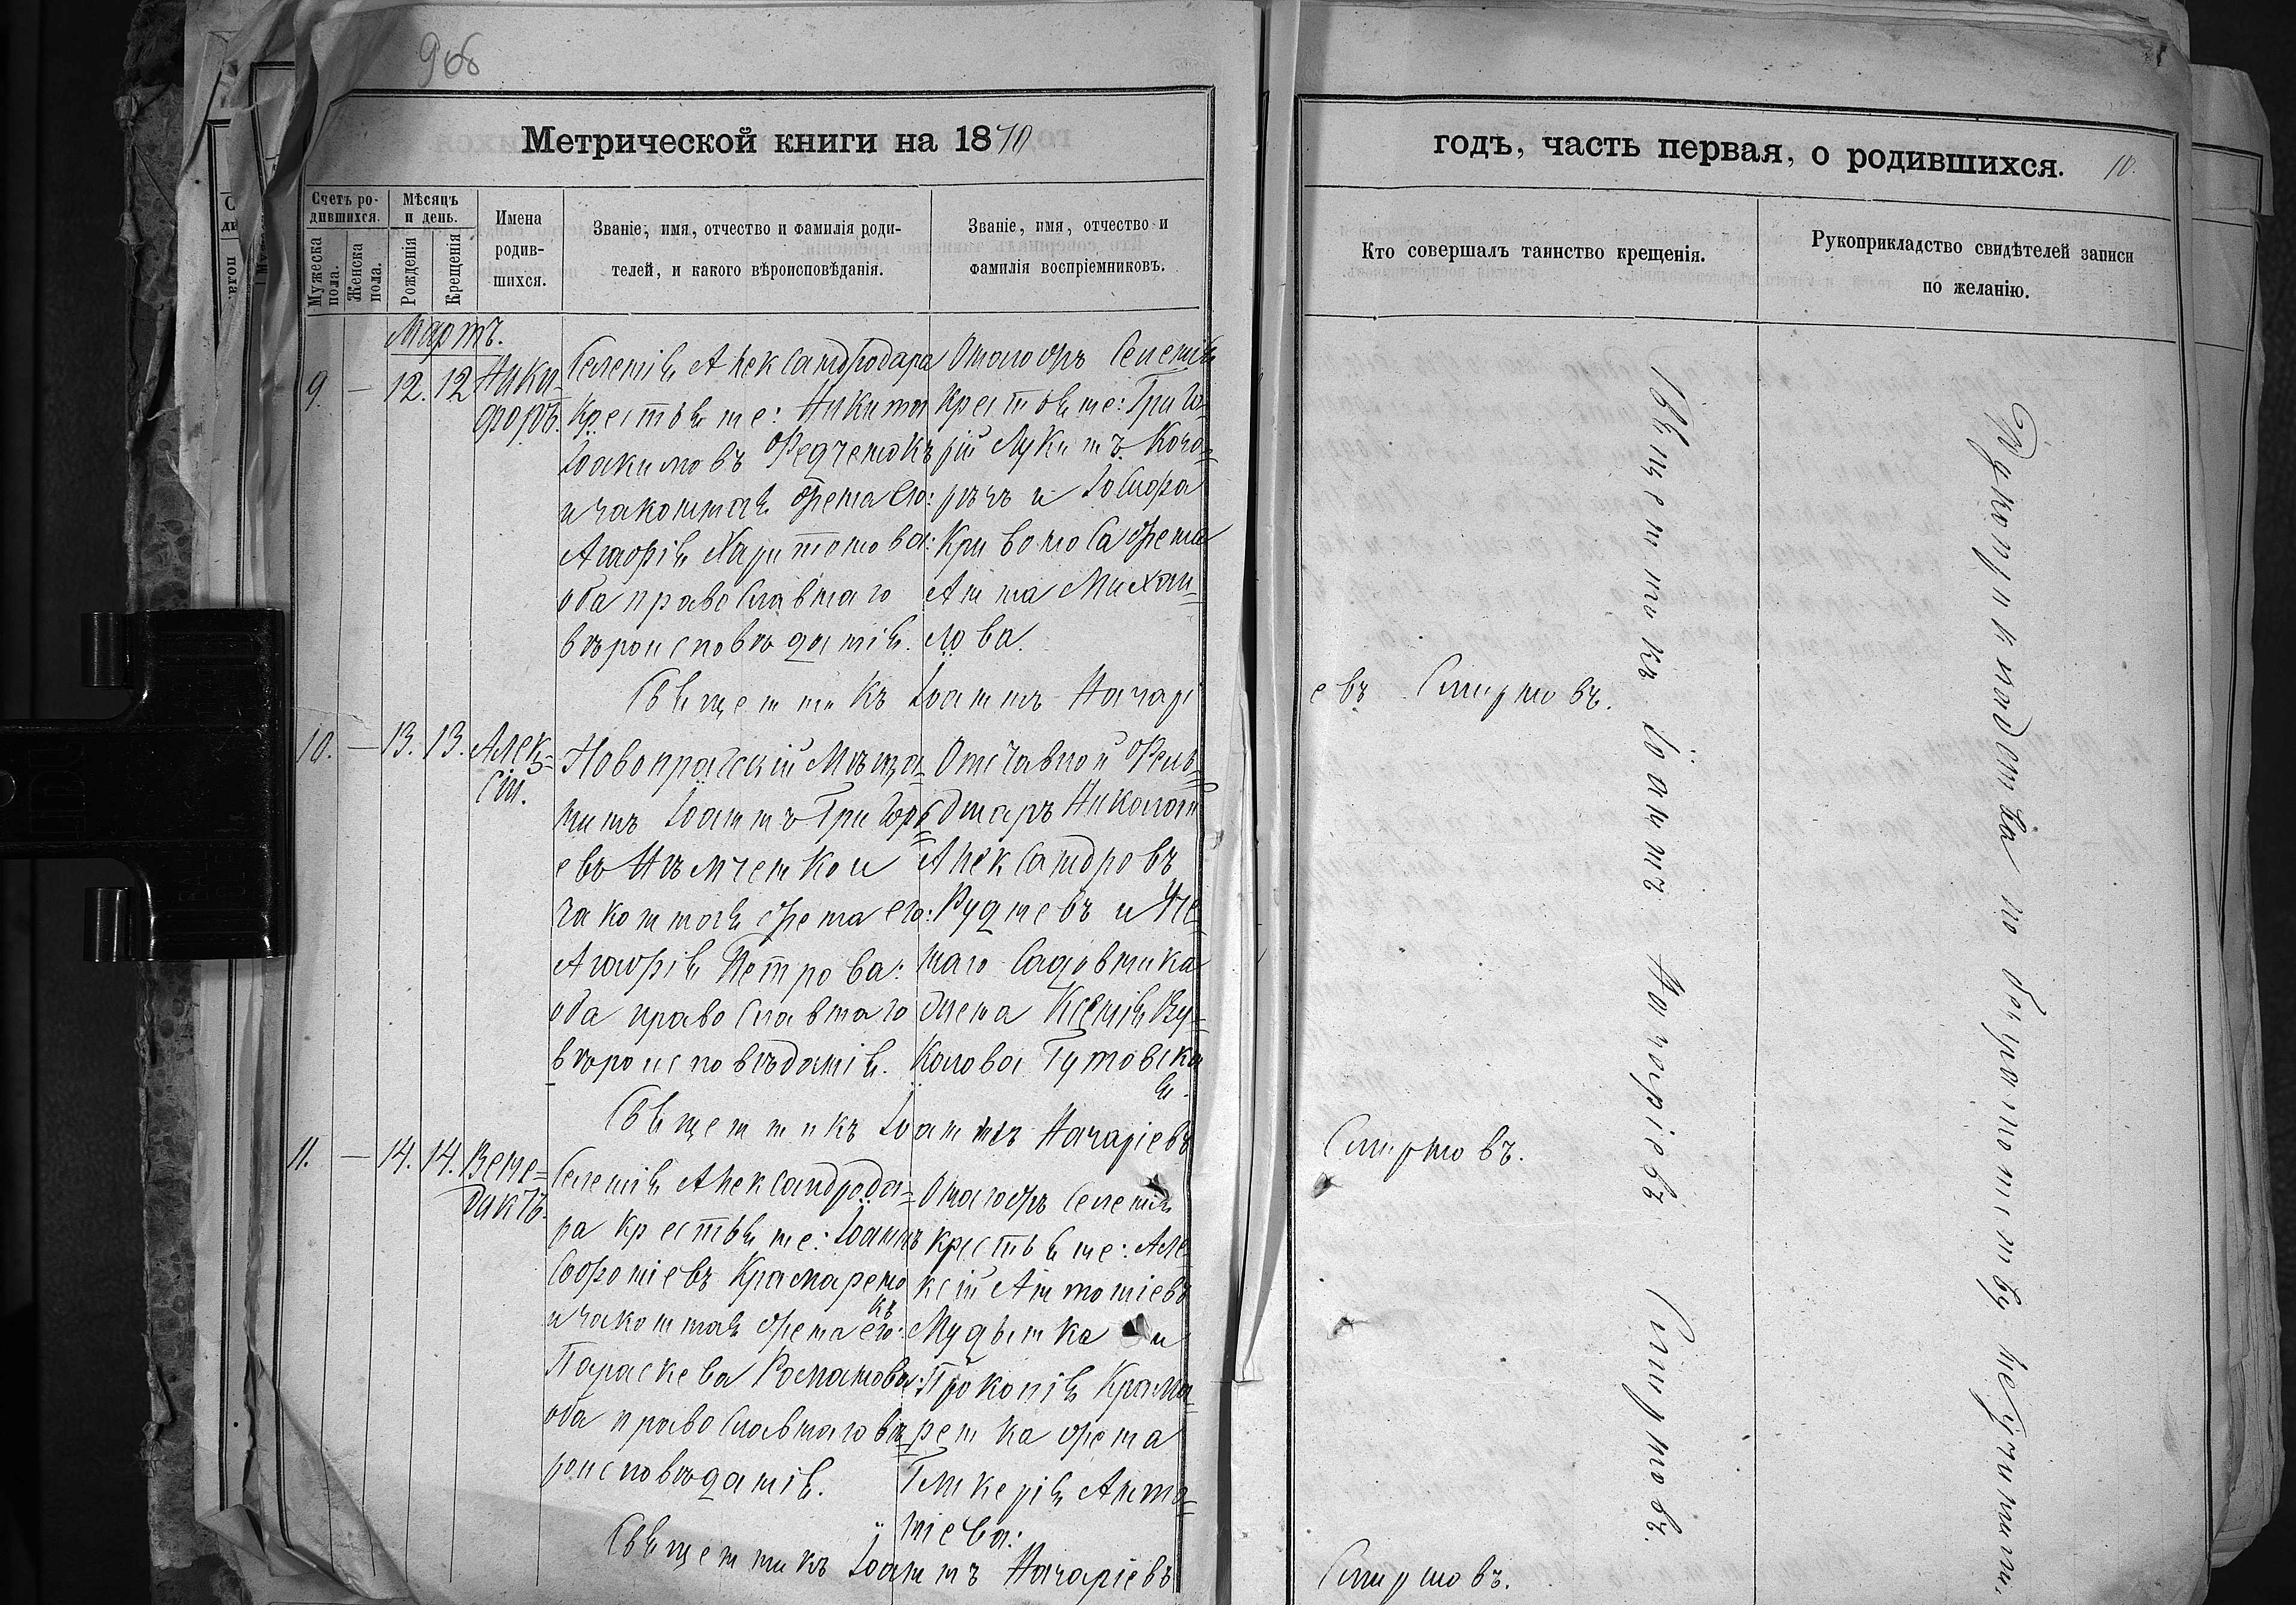 906
Метрической книги на 1870
годъ, часть первая, о родившихся.
10.
Счетъ ро-
дившихся.
Мужеска
пола.
Женска
пола.
Мѣсяцъ
и день.
Рожденія
Крещенія
Имена
родив-
шихся.
Званіе, имя, отчество и фамилія роди-
телей, и какого вѣроисповѣданія.
Званіе, имя, отчество и
фамилія воспріемниковъ.
Кто совершалъ таинство крещенія.
Рукоприкладство свидѣтелей записи
по желанію.
Мартъ.
9. — 12. 12
Ники-
форъ.
Селенія Александродара
Крестьяне: Никита
Іоакимовъ Федченокъ
и законная жена его:
Агафія Харитонова:
оба православнаго
вѣроисповѣданія.
Оттогожъ Селенія
Крестьяне: Григо-
рій Лукинъ
и Іосифа
Кривоноса жена
Анна Михаи-
лова.
Священникъ Іоаннъ Назарі
евъ Смирновъ.
10. — 13. 13.
Алек-
сій.
Новопражскій Мѣща-
нинъ Іоаннъ Григорь-
евъ Нѣмченко и
законная жена его:
Агафія Петрова:
оба православнаго
вѣроисповѣданія.
Отставной Фель-
дшеръ Николай
Александровъ
Рудневъ и
Садовника
жена Ксенія Ву-
колова Гутовска
я.
Священникъ Іоаннъ Назаріевъ
Смирновъ.
11. — 14. 14.
Вене-
диктъ.
Селенія Александрода-
ра крестьяне: Іоаннъ
Софроніевъ Крамарено
къ
и законная жена его:
Параскева Романова:
оба православнаго вѣ-
роисповѣданія.
Оттогожъ Селенія
крестьяне: Але-
ксій Антоніевъ
и
Прокопія Крама-
ренка жена
Гликерія Анто-
ніева:
Священникъ Іоаннъ Назаріевъ
Смирновъ.
Священникъ Іоаннъ Назаріевъ Смирновъ.
Рукоприкладства по безграмотству неучинили.